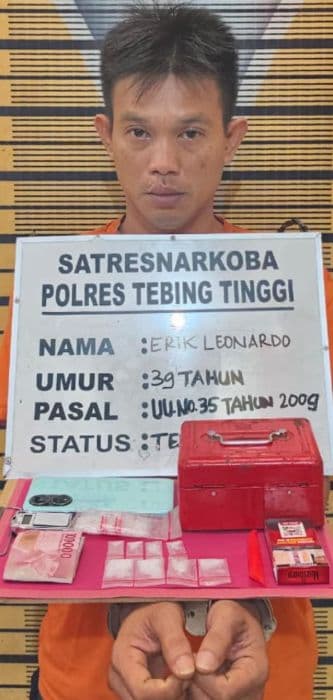 SATRESNARKOBA
POLRES TEBING TINGGI
NAMA : ERIK LEONARDO
UMUR : 39 TAHUN
PASAL : UU.NO.35 TAHUN 2009
STATUS : TE
100000